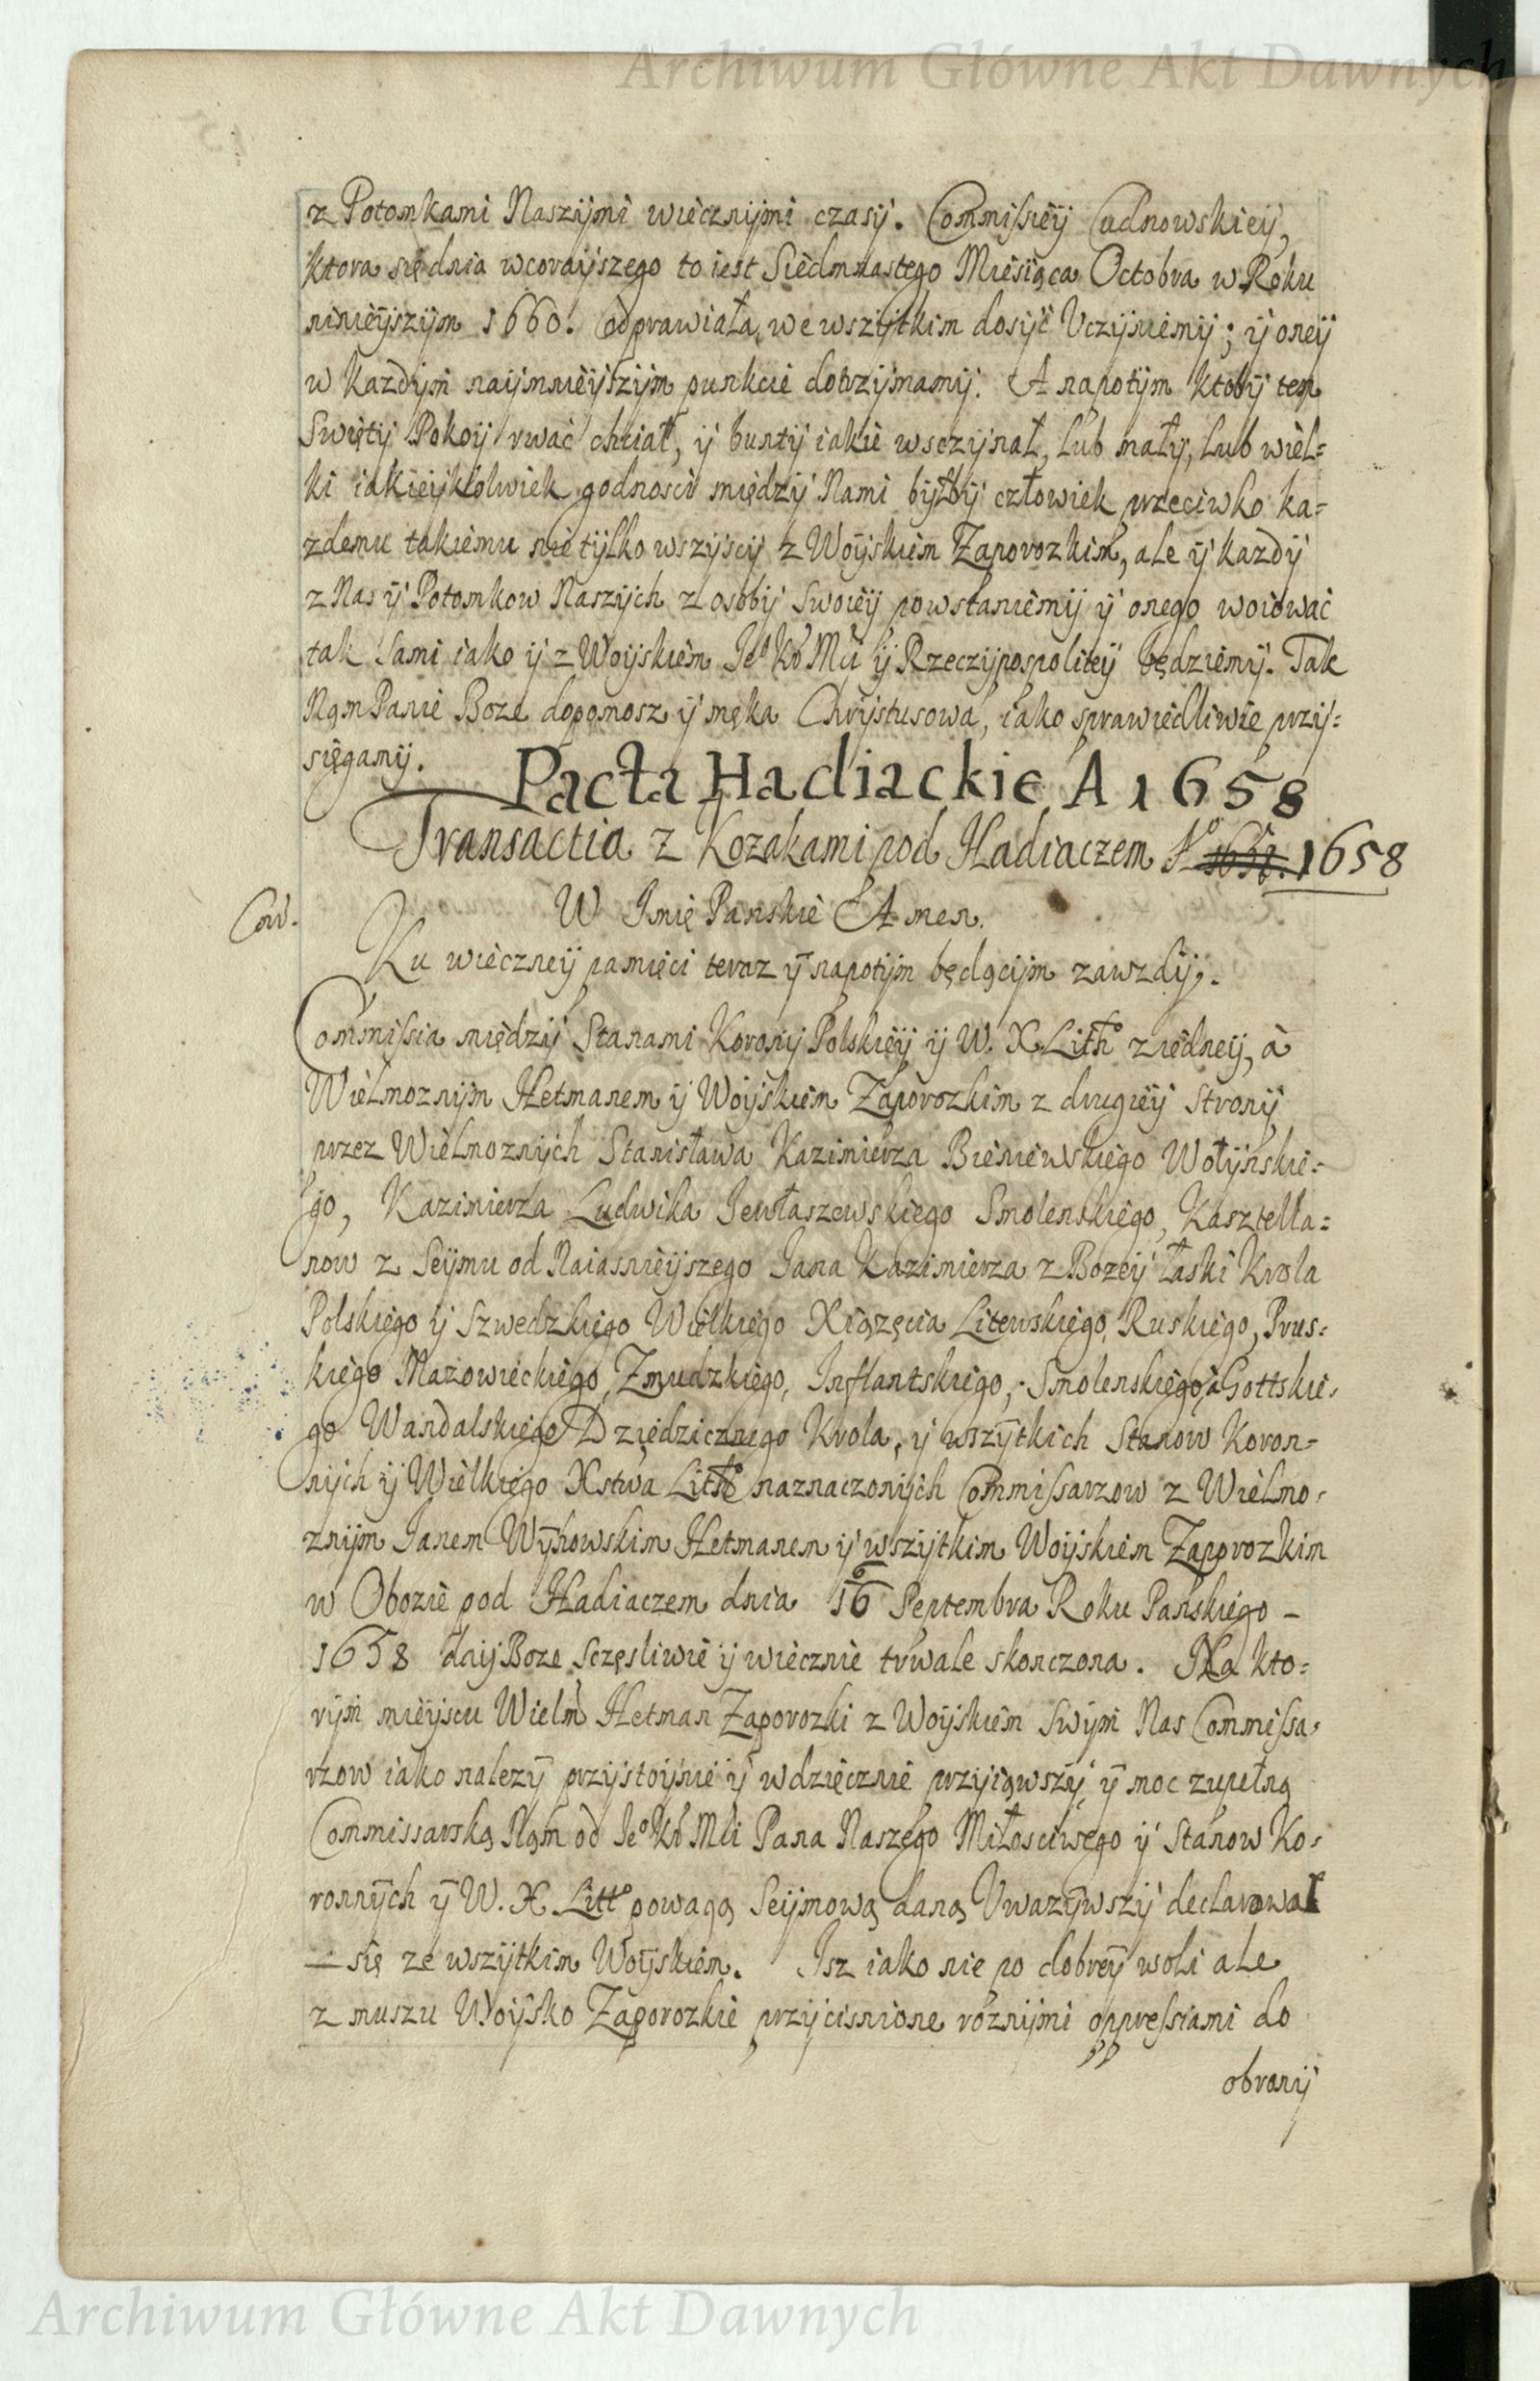 Archiwum Główne Akt Dawnych
z Potomkami Naszÿmi wiecznÿmi czasÿ. Commissieÿ Cudnowskieÿ,
ktora się dnia wcoraÿszego to iest Siedmnastego Miesiąca Octobra w Roku
ninieÿszÿm 1660. odprawiała, we wszÿtkim dosÿć Uczÿniemÿ; ÿ oneÿ
w kazdÿm naÿmnieÿszÿm punkcie dotrzÿmamÿ. A napotÿm ktobÿ ten
Swiętÿ Pokoÿ rwać chciał, ÿ buntÿ iakie wsczÿnał, lub małÿ, lub wiel=
ki iakieÿkolwiek godnosci międzÿ Nami bÿłbÿ człowiek przeciwko ka=
zdemu takiemu nie tÿlko wszÿscÿ z Woÿskiem Zaporozkim, ale ÿ kazdÿ
z Nas ÿ Potomkow Naszÿch z osobÿ swoieÿ powstaniemÿ ÿ onego woiować
tak sami iako ÿ z Woÿskiem Ieº Kº Mci ÿ Rzeczÿpospoliteÿ będziemÿ. Tak
Nąm Panie Boze dopomosz ÿ męka Chrÿstusowa, iako sprawiedliwie przÿ=
sięgamÿ.
Pacta Hadiackie A 1658
Transactia z Kozakami pod Hadiaczem Aº 1658
Con.
W Imię Panskie Amen.
Ku wieczneÿ pamięci teraz ÿ napotÿm będącÿm zawzdÿ.
Commissia międzÿ Stanami Koronÿ Polskieÿ ÿ W. X Litº z iedneÿ, à
Wielmoznÿm Hetmanem ÿ Woÿskiem Zaporozkim z drugieÿ stronÿ
przez Wielmoznÿch Stanisława Kazimierza Bieniewskiego Wołÿnskie=
go, Kazimierza Ludwika Iewłaszewskiego Smolenskiego, Kasztella=
now z Seÿmu od Naiasnieÿszego Iana Kazimierza z Bozeÿ łaski Krola
Polskiego ÿ Szwedzkiego Wielkiego Xiązęcia Litewskiego, Ruskiego, Prus=
kiego Mazowieckiego, Zmudzkiego, Inflantskiego, Smolenskiego, à Gottskie=
go Wandalskiego Dziedzicznego Krola, ÿ wszÿtkich Stanow Koron=
nÿch ÿ Wielkiego Xstwa Litº naznaczonÿch Commissarzow z Wielmo=
znÿm Ianem Wÿhowskim Hetmanem ÿ wszÿtkim Woÿskiem Zaporozkim
w Obozie pod Hadiaczem dnia 16 Septembra Roku Panskiego –
1658 daÿ Boze sczęsliwie ÿ wiecznie trwale skonczona. Na kto=
rÿm mieÿscu Wielm Hetman Zaporozki z Woÿskiem swÿm Nas Commissa=
rzow iako nalezÿ przÿstoÿnie ÿ wdzięcznie przÿiąwszÿ, ÿ moc zupełną
Commissarską Nąm od Ieº Kº Mci Pana Naszego Miłosciwego ÿ Stanow Ko=
ronnÿch ÿ W. X. Littº powagą Seÿmową daną Uwazÿwszÿ declarował
— się ze wszÿtkim Woÿskiem. Isz iako nie po dobreÿ woli ale
z muszu Woÿsko Zaporozkie przÿcisnione roznÿmi oppressiami do
obronÿ
Archiwum Główne Akt Dawnych